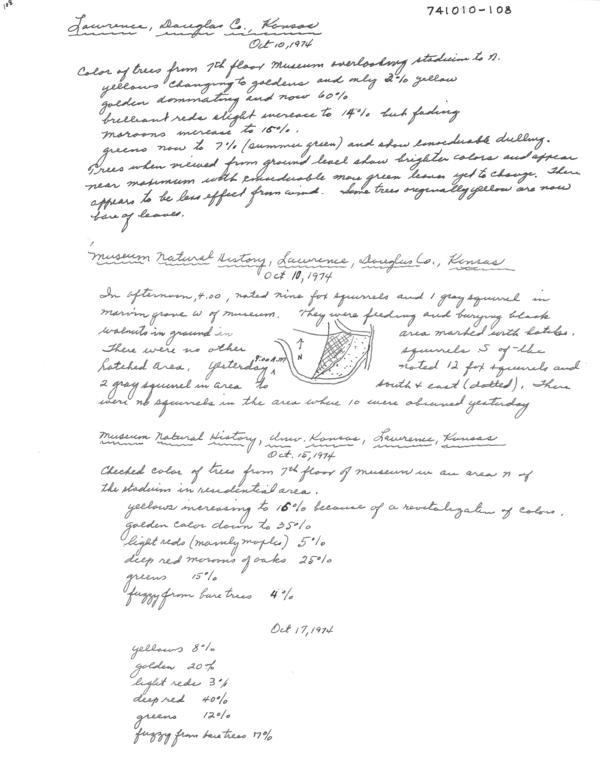 108
741010-108
Lawrence, Douglas Co., Kansas
Oct 10, 1974
Color of trees from 7th floor Museum overlooking stadium to N.
yellows changing to goldens and only 2% yellow
golden dominating and now 60%
brilliant reds slight increase to 14% but fading
maroons increase to 15%.
greens now to 7% (summer green) and show considerable dulling.
Trees when viewed from ground level show brighter colors and appear
near maximum with considerable more green leaves yet to change. There
appears to be less effect from wind. Some trees originally yellow are now
bare of leaves.
Museum Natural History, Lawrence, Douglas Co., Kansas
Oct 10, 1974
In afternoon, 4:00, noted nine fox squirrels and 1 gray squirrel in
marvin grove W of museum. They were feeding and burying black
walnuts in ground in area marked with hatches.
There were no other squirrels S of the
hatched area. Yesterday 9:00 A.M. noted 12 fox squirrels and
N
2 gray squirrel in area to south & east (dotted). There
were no squirrels in the area where 10 were observed yesterday
Museum Natural History, Univ. Kansas, Lawrence, Kansas
Oct. 15, 1974
Checked color of trees from 7th floor of museum in an area N of
the stadium in residential area.
yellows increasing to 16% because of a revitalization of colors.
golden color down to 35%
light reds (mainly maples) 5%
deep red maroons of oaks 25%
greens 15%
fuzzy from bare trees 4%
Oct 17, 1974
yellows 8%
golden 20%
light reds 3%
deep red 40%
greens 12%
fuzzy from bare trees 17%